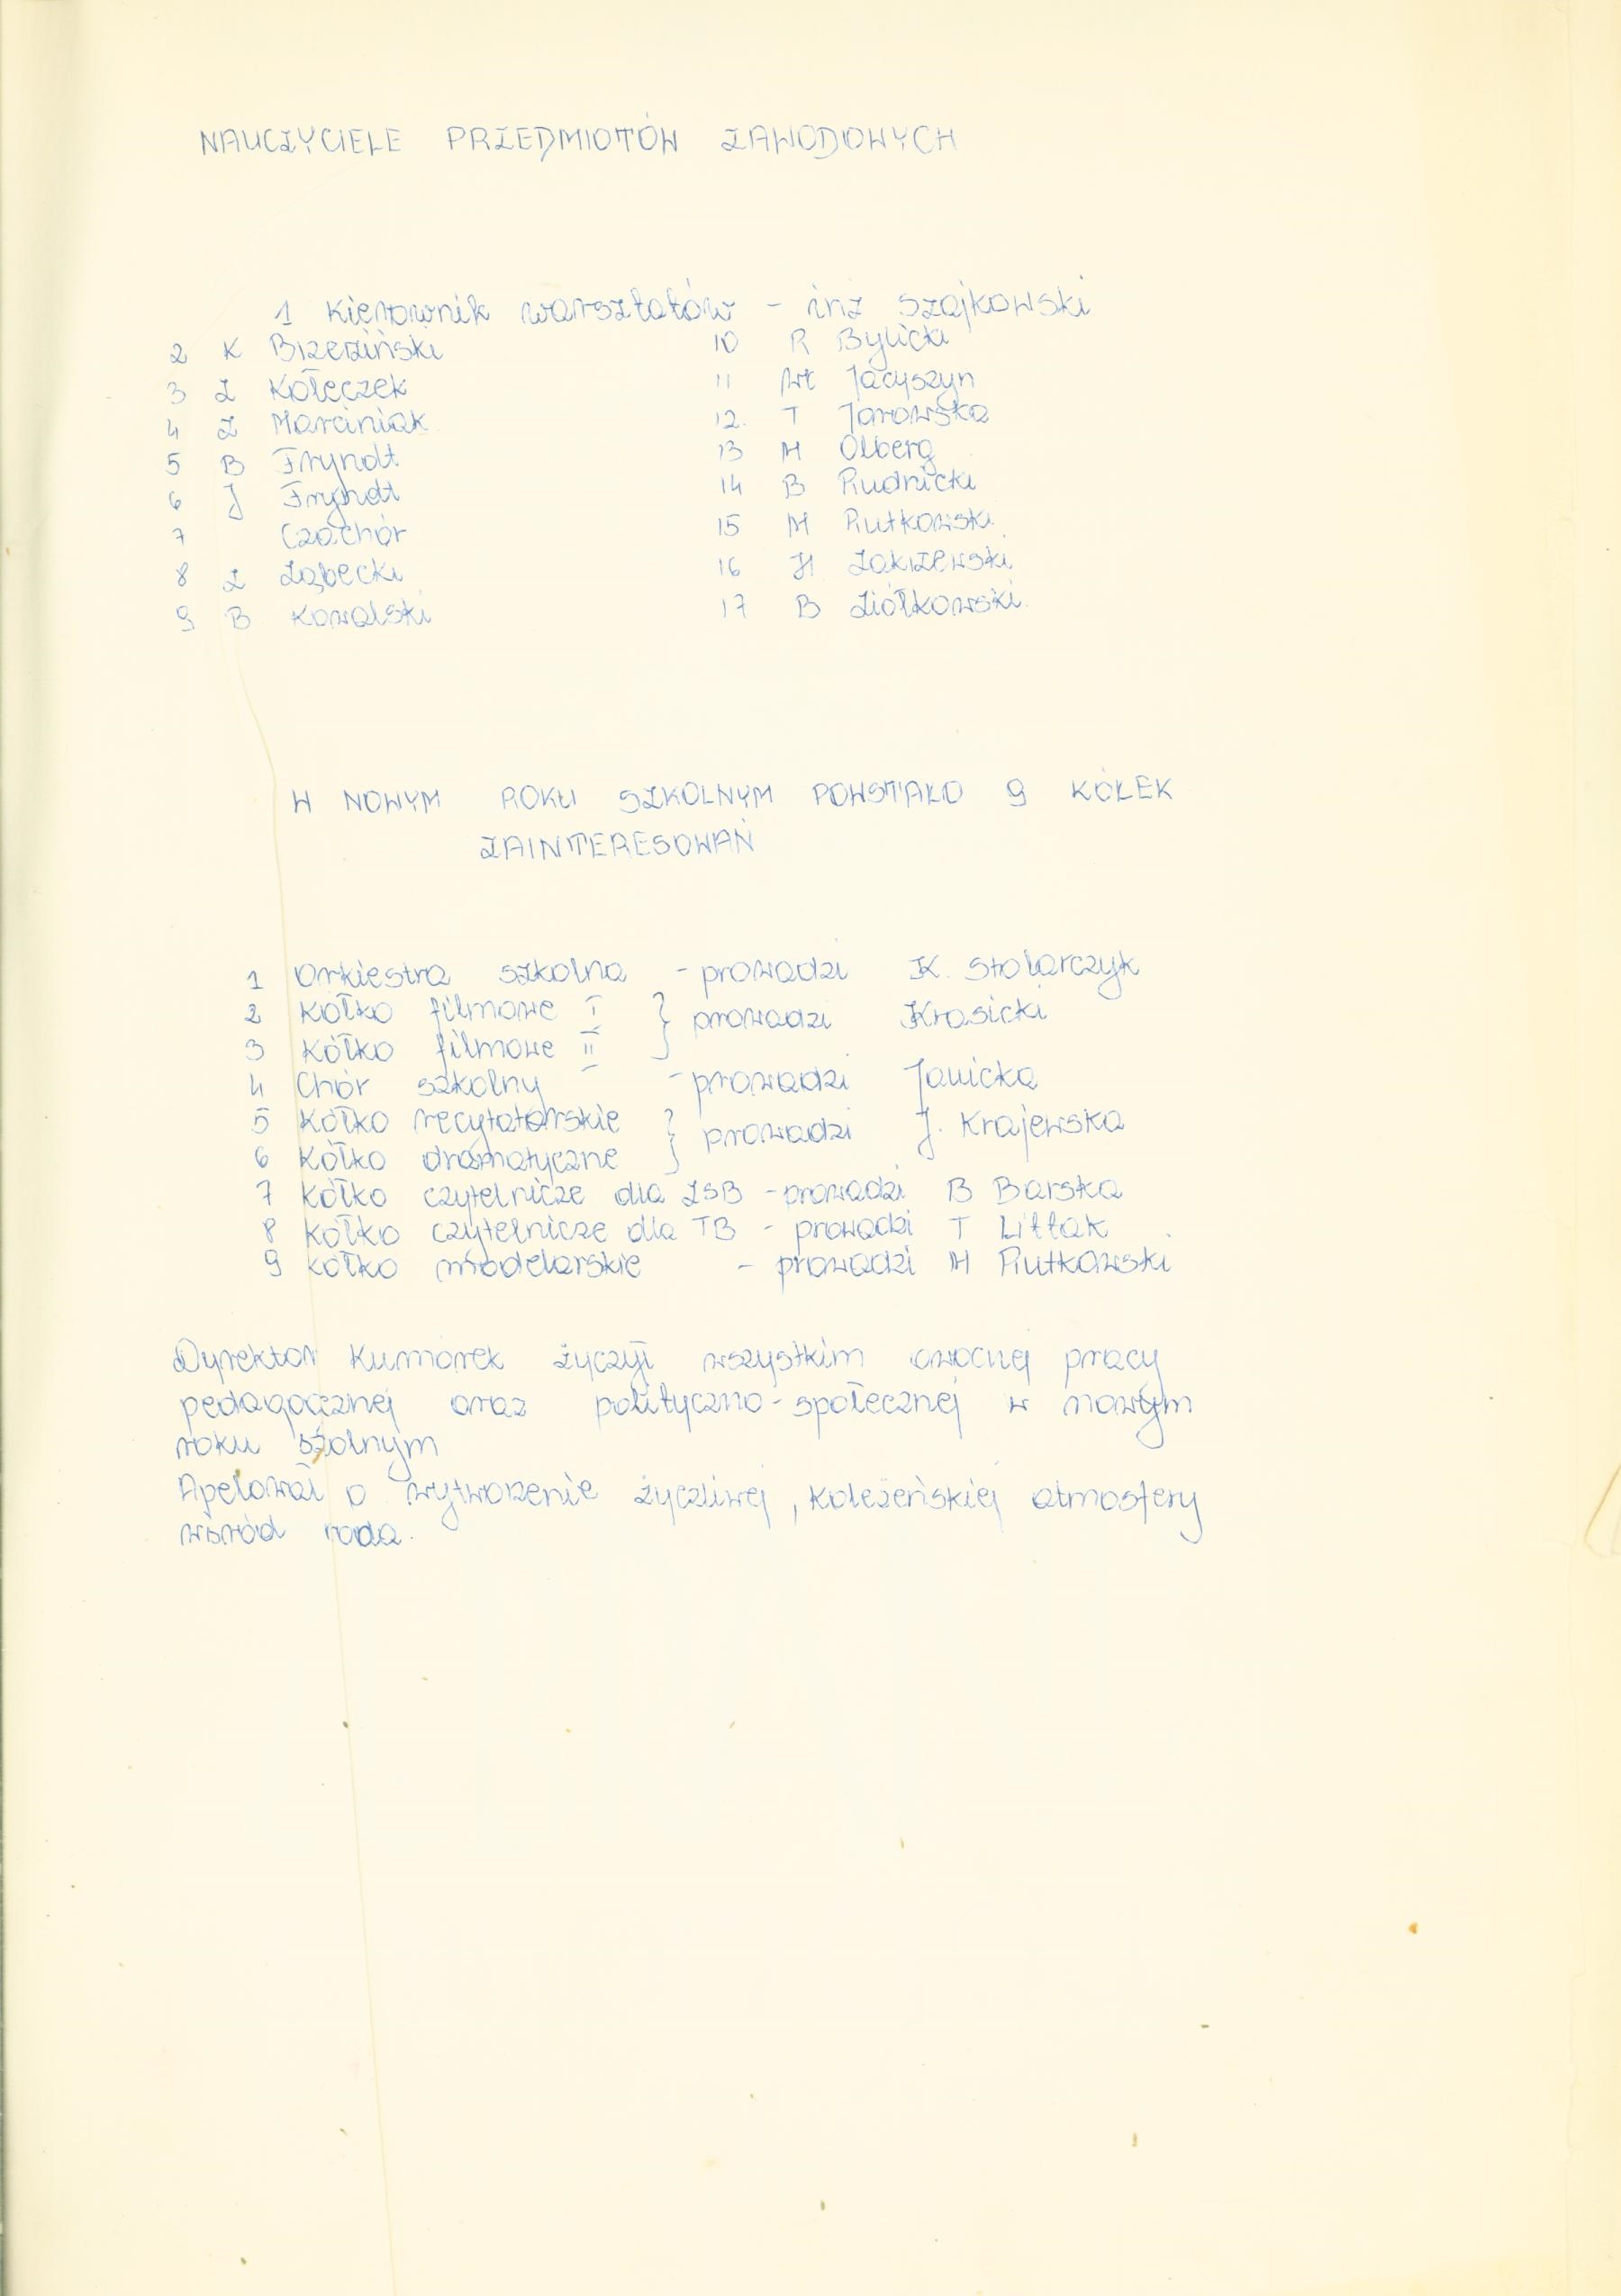 NAUCZYCIELE PRZEDMIOTÓW ZAWODOWYCH
1 Kierownik warsztatów - inż Szajkowski
2 K Brzeziński
3 Z Kołeczek
4 Z Marciniak
5 B Fryndt
6 J Fryndt
7 Czachór
8 Z Ząbecki
9 B Kowalski
10 R Bylicki
11 Wł Jacyszyn
12. T Jarowska
13 M Olberg
14 B Rudnicki
15 M Rutkowski
16 H Zakrzewski
17 B Ziółkowski
W NOWYM ROKU SZKOLNYM POWSTAŁO 9 KÓŁEK
ZAINTERESOWAŃ
1 Orkiestra szkolna - prowadzi K. Stolarczyk
2 Kółko filmowe I } prowadzi Krasicki
3 Kółko filmowe II
4 Chór szkolny - prowadzi Janicka
5 Kółko recytatorskie } prowadzi J. Krajewska
6 Kółko dramatyczne
7 Kółko czytelnicze dla ZSB - prowadzi B Barska
8 Kółko czytelnicze dla TB - prowadzi T Littak
9 Kółko modelarskie - prowadzi M Rutkowski
Dyrektor Kumorek życzył wszystkim owocnej pracy
pedagogcznej oraz polityczno-społecznej w nowym
roku szolnym
Apelował o wytworzenie życzliwej, koleżeńskiej atmosfery
wśród rada.